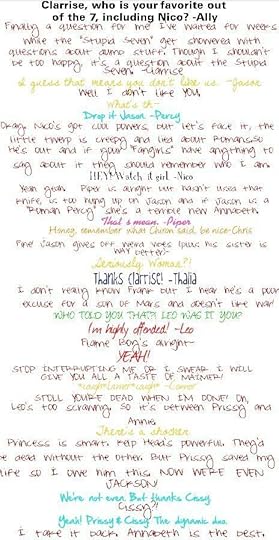 Clarrise, who is your favorite out
of the 7, including Nico? -Ally
Finally a question for me I've waited for weeks
while the "Stupid Seven" get showered with
questions about dumb stuff. Though I shouldn't
be too happy, it's a question about the Stupid
Seven. -Clarisse
I guess that means you don't like us. -Jason
Well I don't like you,
What's th-
Drop it Jason -Percy
Okay, Nico's got cool powers, but let's face it, the
little twerp is creepy and lied about Romans. So
He's out and if your "Fangirls" have anything to
say about it they should remember who I am.
HEY! Watch it girl -Nico
Yeah yeah. Piper is alright but hasn't used that
knife, is too hung up on Jason and if Jason is a
"Roman Percy" she's a terrible new Annabeth
That's mean. -Piper
Honey, remember what Chiron said, be nice-Chris
Fine. Jason gives off weird vibes (plus his sister is
way better)-
Seriously Woman?!
Thanks Clarrise! -Thalia
I don't really know Frank but I hear he's a poor
excuse for a son of Mars and doesn't like war!
WHO TOLD YOU THAT? LEO WAS IT YOU?
I'm highly offended! -Leo
Flame Boy's alright-
YEAH!
STOP INTERRUPTING ME OR I SWEAR I WILL
GIVE YOU ALL A TASTE OF MAIMER!
*cough*Lamer*cough* -Connor
STOLL YOU'RE DEAD WHEN I'M DONE! Oh,
Leo's too scrawny, so it's between Prissy and
Annie.
There's a shocker
Princess is smart. Kelp Head's powerful. They'd
be dead without the other. But Prissy saved my
life so I give him this. NOW WE'RE EVEN
JACKSON!
We're not even. But thanks Cissy.
Cissy?!
Yeah! Prissy & Cissy. The dynamic duo.
I take it back. Annabeth is the best.